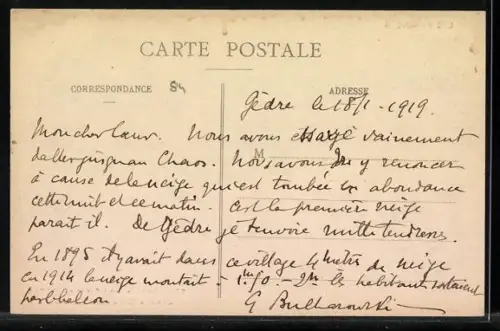 CARTE POSTALE
CORRESPONDANCE 84
ADRESSE
Gèdre le 18/1-1919.
Mon cher Cœur. Nous avons essayé vainement
d'aller jusqu'au Chaos. Nous avons dû y renoncer
à cause de la neige qui est tombée en abondance
cette nuit et ce matin. C'est la première neige
parait il. De Gèdre je t'envoie mille tendresses.
En 1895 il y avait dans ce village 4 mètres de neige
en 1914 la neige montait 1m50 - 2m les habitants sortaient
par le balcon
G